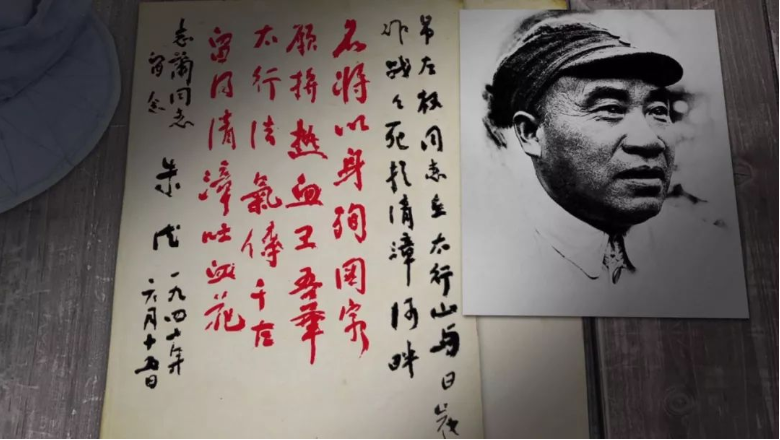 吊左权同志在太行山与日寇
作战々死於清漳河畔
名将以身殉国家
愿拚热血卫吾華
太行浩氣傳千古
留得清漳吐血花
志蘭同志
留念
朱德
一九四十年
六月十五日